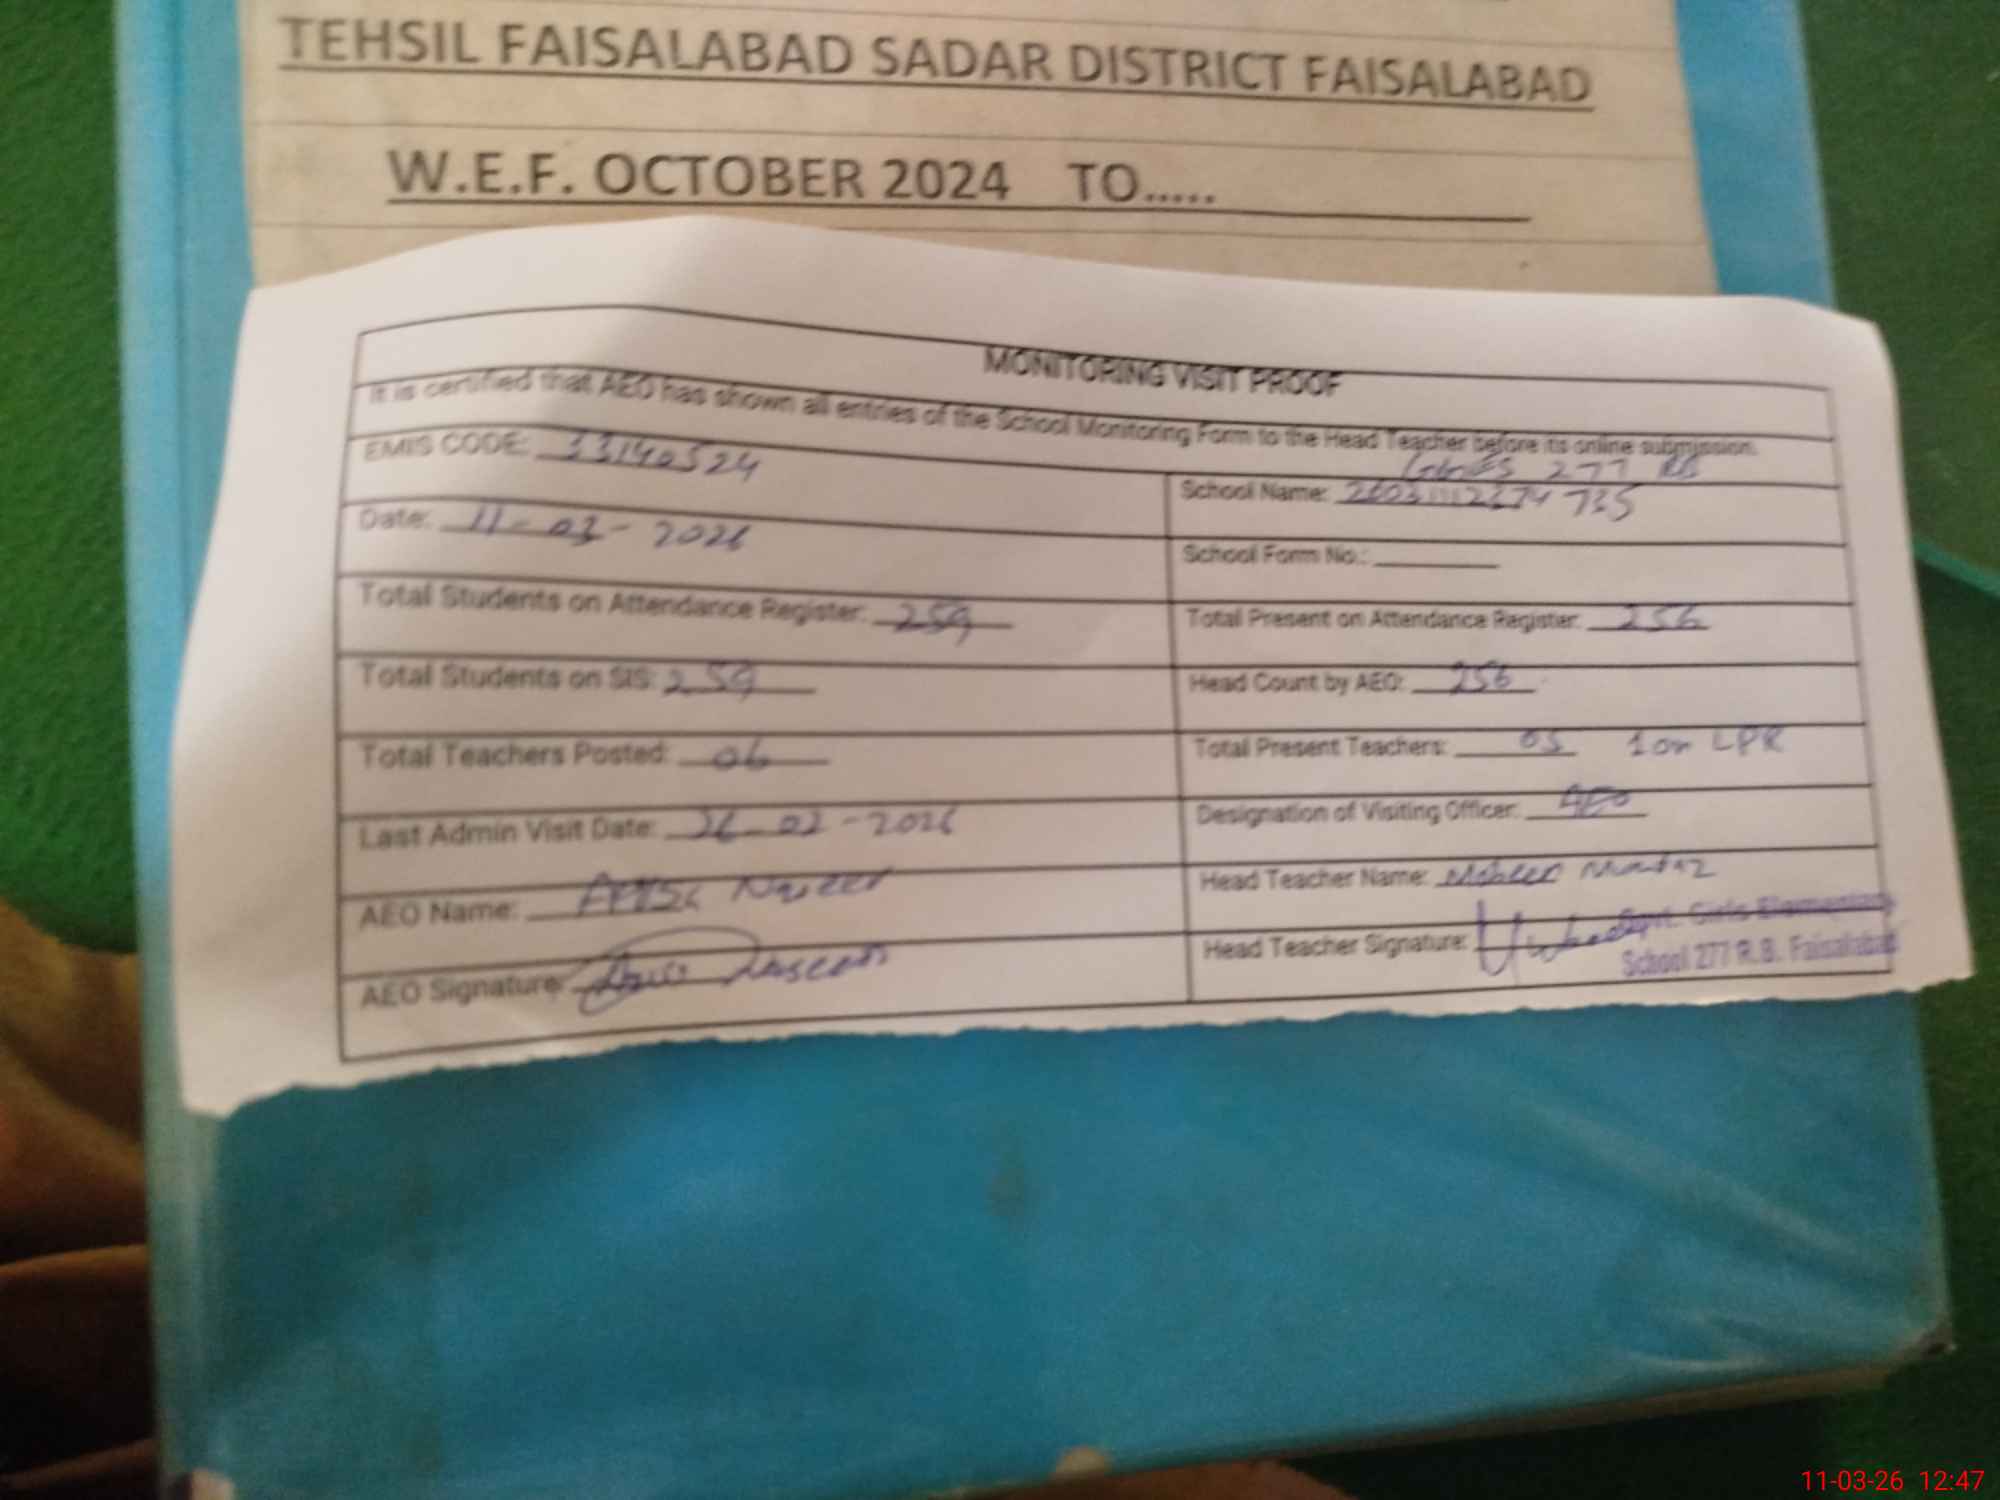 TEHSIL FAISALABAD SADAR DISTRICT FAISALABAD
W.E.F. OCTOBER 2024 TO.....
MONITORING VISIT PROOF
It is certified that AEO has shown all entries of the School Monitoring Form to the Head Teacher before its online submission.
EMIS CODE: 33140524
School Name: GGES 277 RB
Date: 11-03-2026
School Form No.:
Total Students on Attendance Register: 259
Total Present on Attendance Register: 256
Total Students on SIS: 259
Head Count by AEO: 256
Total Teachers Posted: 06
Total Present Teachers: 05 1 on LPR
Last Admin Visit Date: 26-02-2026
Designation of Visiting Officer: AEO
AEO Name:
Head Teacher Name:
AEO Signature:
Head Teacher Signature:
Govt. Girls Elementary
School 277 R.B. Faisalabad
11-03-26 12:47